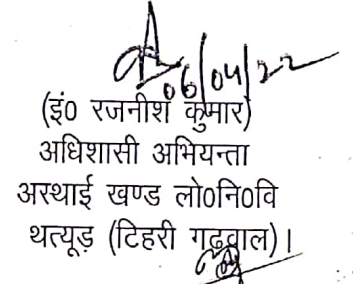 06/04/22
(इं० रजनीश कुमार)
अधिशासी अभियन्ता
अस्थाई खण्ड लो०नि०वि
थत्यूड़ (टिहरी गढ़वाल)।